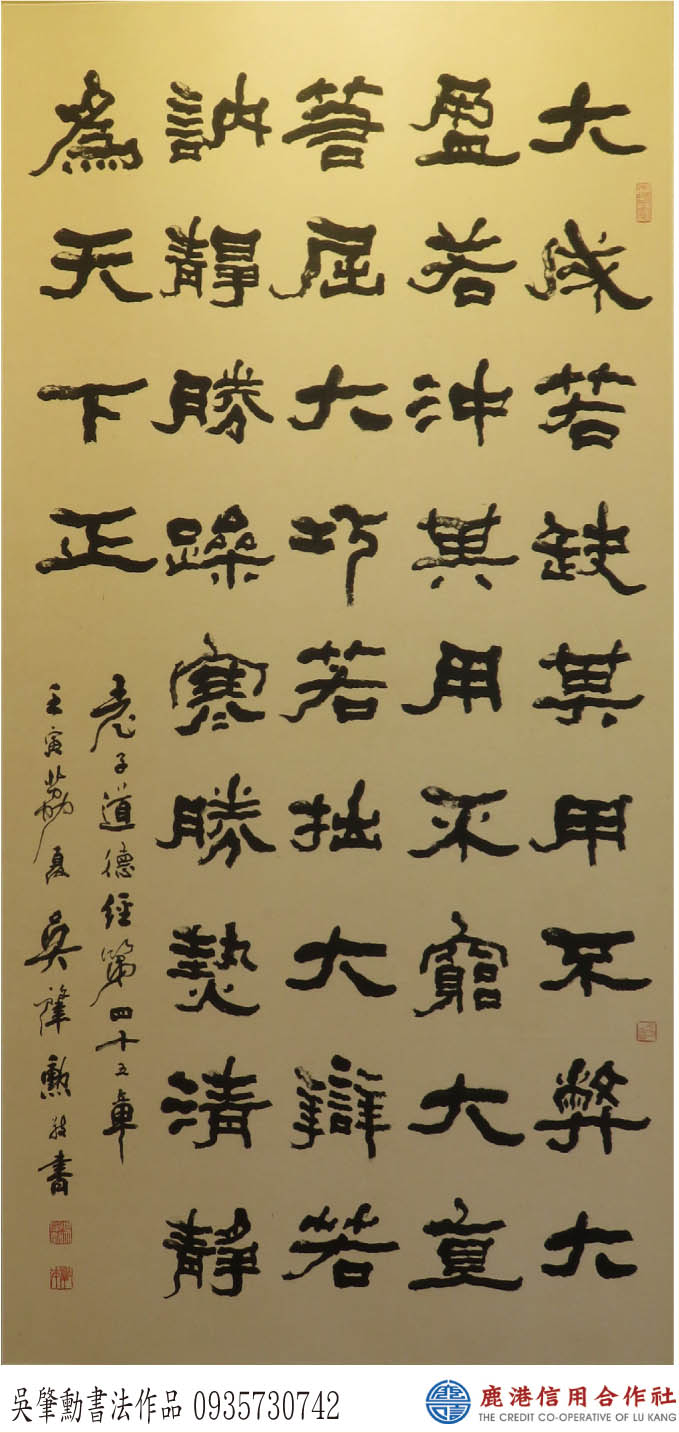 大成若缺其用不弊大
盈若沖其用不窮大直
若屈大巧若拙大辯若
訥靜勝躁寒勝熱清靜
為天下正
老子道德經第四十五章
壬寅荔夏吳肇勳敬書
吳肇勳書法作品 0935730742
鹿港信用合作社
THE CREDIT CO-OPERATIVE OF LU KANG